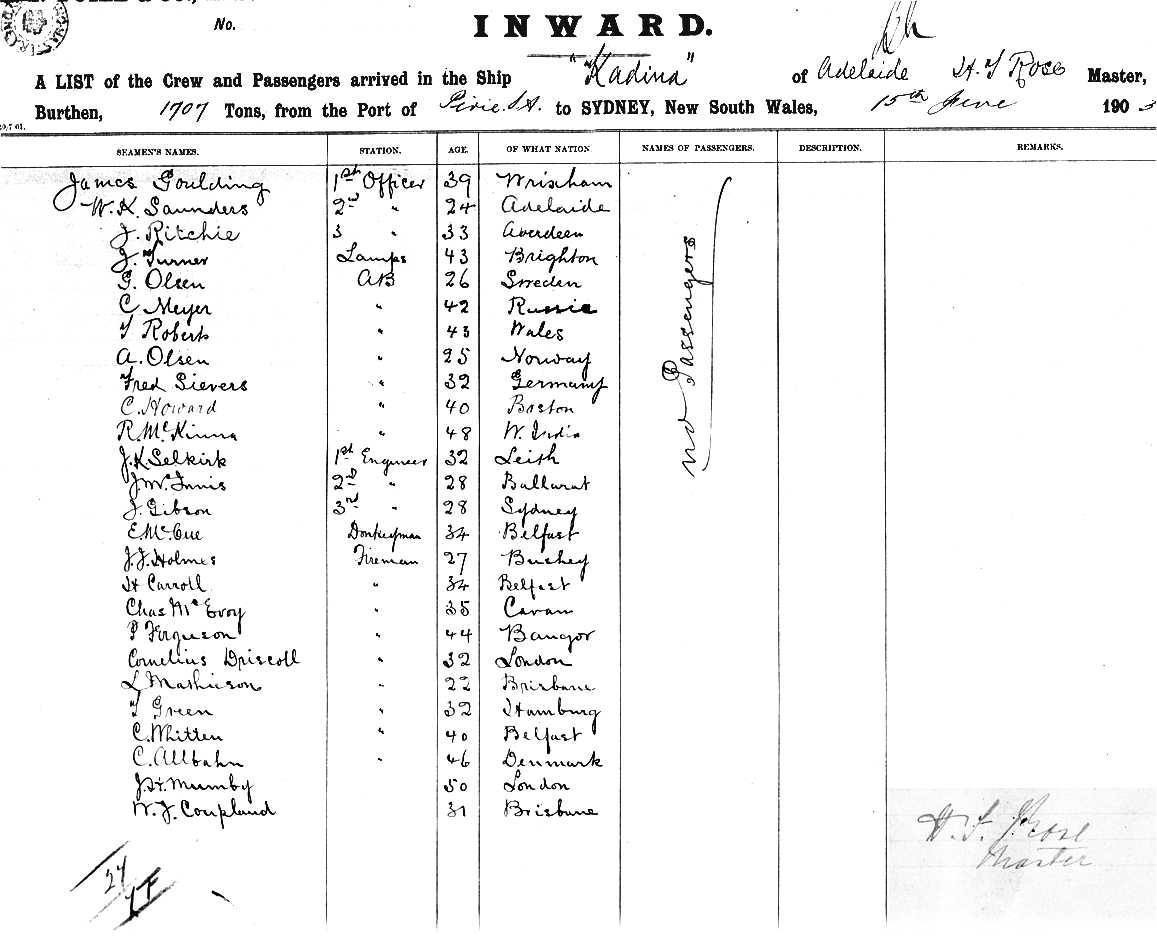 No.
INWARD.
A LIST of the Crew and Passengers arrived in the Ship "Kadina" of Adelaide H. F Rose Master,
Burthen, 1707 Tons, from the Port of Pirie S.A. to SYDNEY, New South Wales, 15th June 1903
SEAMEN'S NAMES. STATION. AGE. OF WHAT NATION NAMES OF PASSENGERS. DESCRIPTION. REMARKS.
James Goulding 1st Officer 39 Wrixham
W. K. Saunders 2nd " 24 Adelaide
J. Ritchie 3 " 33 Averdeen
J. Turner Lamps 43 Brighton
G. Olsen AB 26 Sweden
C Meyer " 42 Russia
T Roberts " 43 Wales
A. Olsen " 25 Norway
Fred Sievers " 32 Germany
C. Howard " 40 Boston
R. McKinna " 48 W. India
J. K. Selkirk 1st Engineer 32 Leith
J. McInnis 2nd " 28 Ballarat
J. Gibson 3rd " 28 Sydney
E. McCue Donkeyman 34 Belfast
J. J. Holmes Fireman 27 Bushey
H Carroll " 34 Belfast
Chas McEvoy " 35 Cavan
P Ferguson " 44 Bangor
Cornelius Driscoll " 32 London
L Mathieson " 22 Brisbane
T Green " 32 Hamburg
C. Whitten " 40 Belfast
C. Allbahn " 46 Denmark
J. H. Mumby 50 London
W. J. Coupland 31 Brisbane
no Passengers
H. F. Rose
Master
27